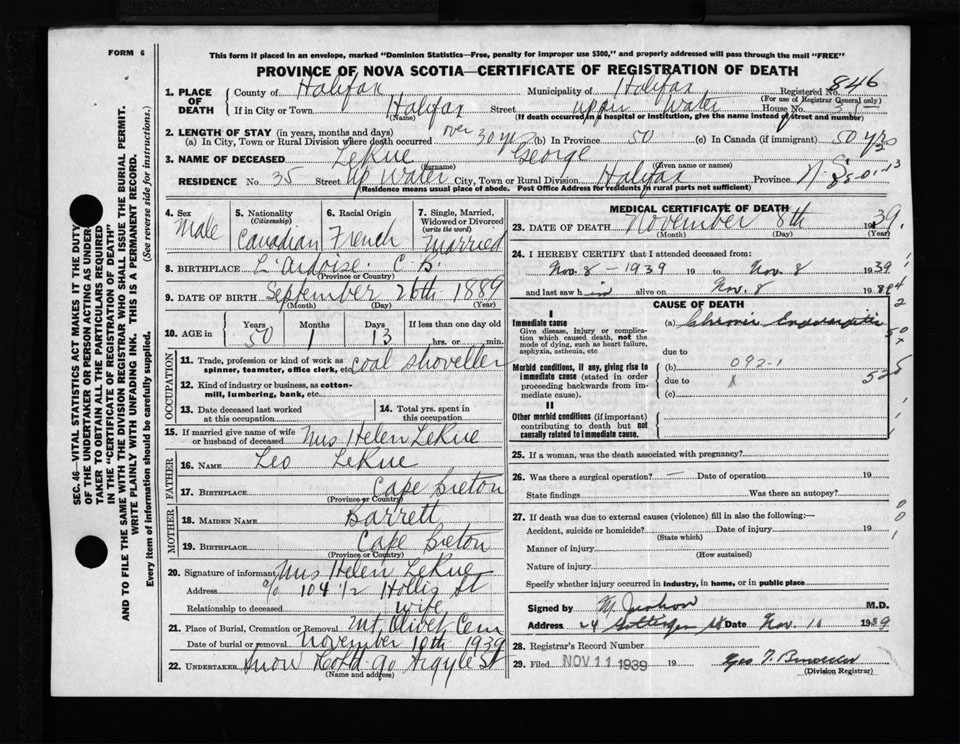 FORM 6
This form if placed in an envelope, marked "Dominion Statistics—Free, penalty for improper use $300," and properly addressed will pass through the mail "FREE"
PROVINCE OF NOVA SCOTIA—CERTIFICATE OF REGISTRATION OF DEATH
1. PLACE OF DEATH County of Halifax Municipality of Halifax Registered No. 846
(For use of Registrar General only)
If in City or Town Halifax Street upper Water House No. 35
(Name) (If death occurred in a hospital or institution, give the name instead of street and number)
2. LENGTH OF STAY (in years, months and days)
(a) In City, Town or Rural Division where death occurred over 30 yrs (b) In Province 50 (c) In Canada (if immigrant) 50 yrs
3. NAME OF DECEASED LeRue George
(Surname) (Given name or names)
RESIDENCE No. 35 Street Up Water City, Town or Rural Division Halifax Province N.S.
(Residence means usual place of abode. Post Office Address for residents in rural parts not sufficient)
4. Sex Male
5. Nationality (Citizenship) Canadian
6. Racial Origin French
7. Single, Married, Widowed or Divorced (write the word) Married
8. BIRTHPLACE L'Ardoise. C.B
(Province or Country)
9. DATE OF BIRTH September 26th 1889
(Month) (Day) (Year)
10. AGE in Years 50 Months 1 Days 13 If less than one day old hrs. or min.
OCCUPATION
11. Trade, profession or kind of work as spinner, teamster, office clerk, etc. coal shoveller
12. Kind of industry or business, as cotton-mill, lumbering, bank, etc.
13. Date deceased last worked at this occupation
14. Total yrs. spent in this occupation
15. If married give name of wife or husband of deceased Mrs Helen LeRue
FATHER
16. NAME Leo LeRue
17. BIRTHPLACE Cape Breton
(Province or Country)
MOTHER
18. MAIDEN NAME Barrett
19. BIRTHPLACE Cape Breton
(Province or Country)
20. Signature of informant Mrs Helen LeRue
Address % 104 1/2 Hollis St
Relationship to deceased wife
21. Place of Burial, Cremation or Removal Mt. Olivet Cem
Date of burial or removal November 10th 1939
22. UNDERTAKER Snow Co Ltd 90 Argyle St
(Name and address)
MEDICAL CERTIFICATE OF DEATH
23. DATE OF DEATH November 8th 1939.
(Month) (Day) (Year)
24. I HEREBY CERTIFY that I attended deceased from:
Nov. 8 - 1939 19 to Nov. 8 1939
and last saw him alive on Nov. 8 19
CAUSE OF DEATH
I
Immediate cause
Give disease, injury or complication which caused death, not the mode of dying, such as heart failure, asphyxia, asthenia, etc
(a) Chronic
due to
Morbid conditions, if any, giving rise to immediate cause (stated in order proceeding backwards from immediate cause).
(b) 092-1
due to
(c)
II
Other morbid conditions (if important) contributing to death but not causally related to immediate cause.
25. If a woman, was the death associated with pregnancy?
26. Was there a surgical operation? — Date of operation 19
State findings Was there an autopsy?
27. If death was due to external causes (violence) fill in also the following:—
Accident, suicide or homicide? Date of injury 19
(State which)
Manner of injury
(How sustained)
Nature of injury
Specify whether injury occurred in industry, in home, or in public place
Signed by M.D.
Address 24 Gottingen St Date Nov. 10 1939
28. Registrar's Record Number
29. Filed NOV 11 1939 19
(Division Registrar)
SEC. 46—VITAL STATISTICS ACT MAKES IT THE DUTY OF THE UNDERTAKER OR PERSON ACTING AS UNDERTAKER TO OBTAIN ALL THE PARTICULARS REQUIRED IN THE "CERTIFICATE OF REGISTRATION OF DEATH"
AND TO FILE THE SAME WITH THE DIVISION REGISTRAR WHO SHALL ISSUE THE BURIAL PERMIT.
WRITE PLAINLY WITH UNFADING INK. THIS IS A PERMANENT RECORD.
Every item of information should be carefully supplied. (See reverse side for instructions.)